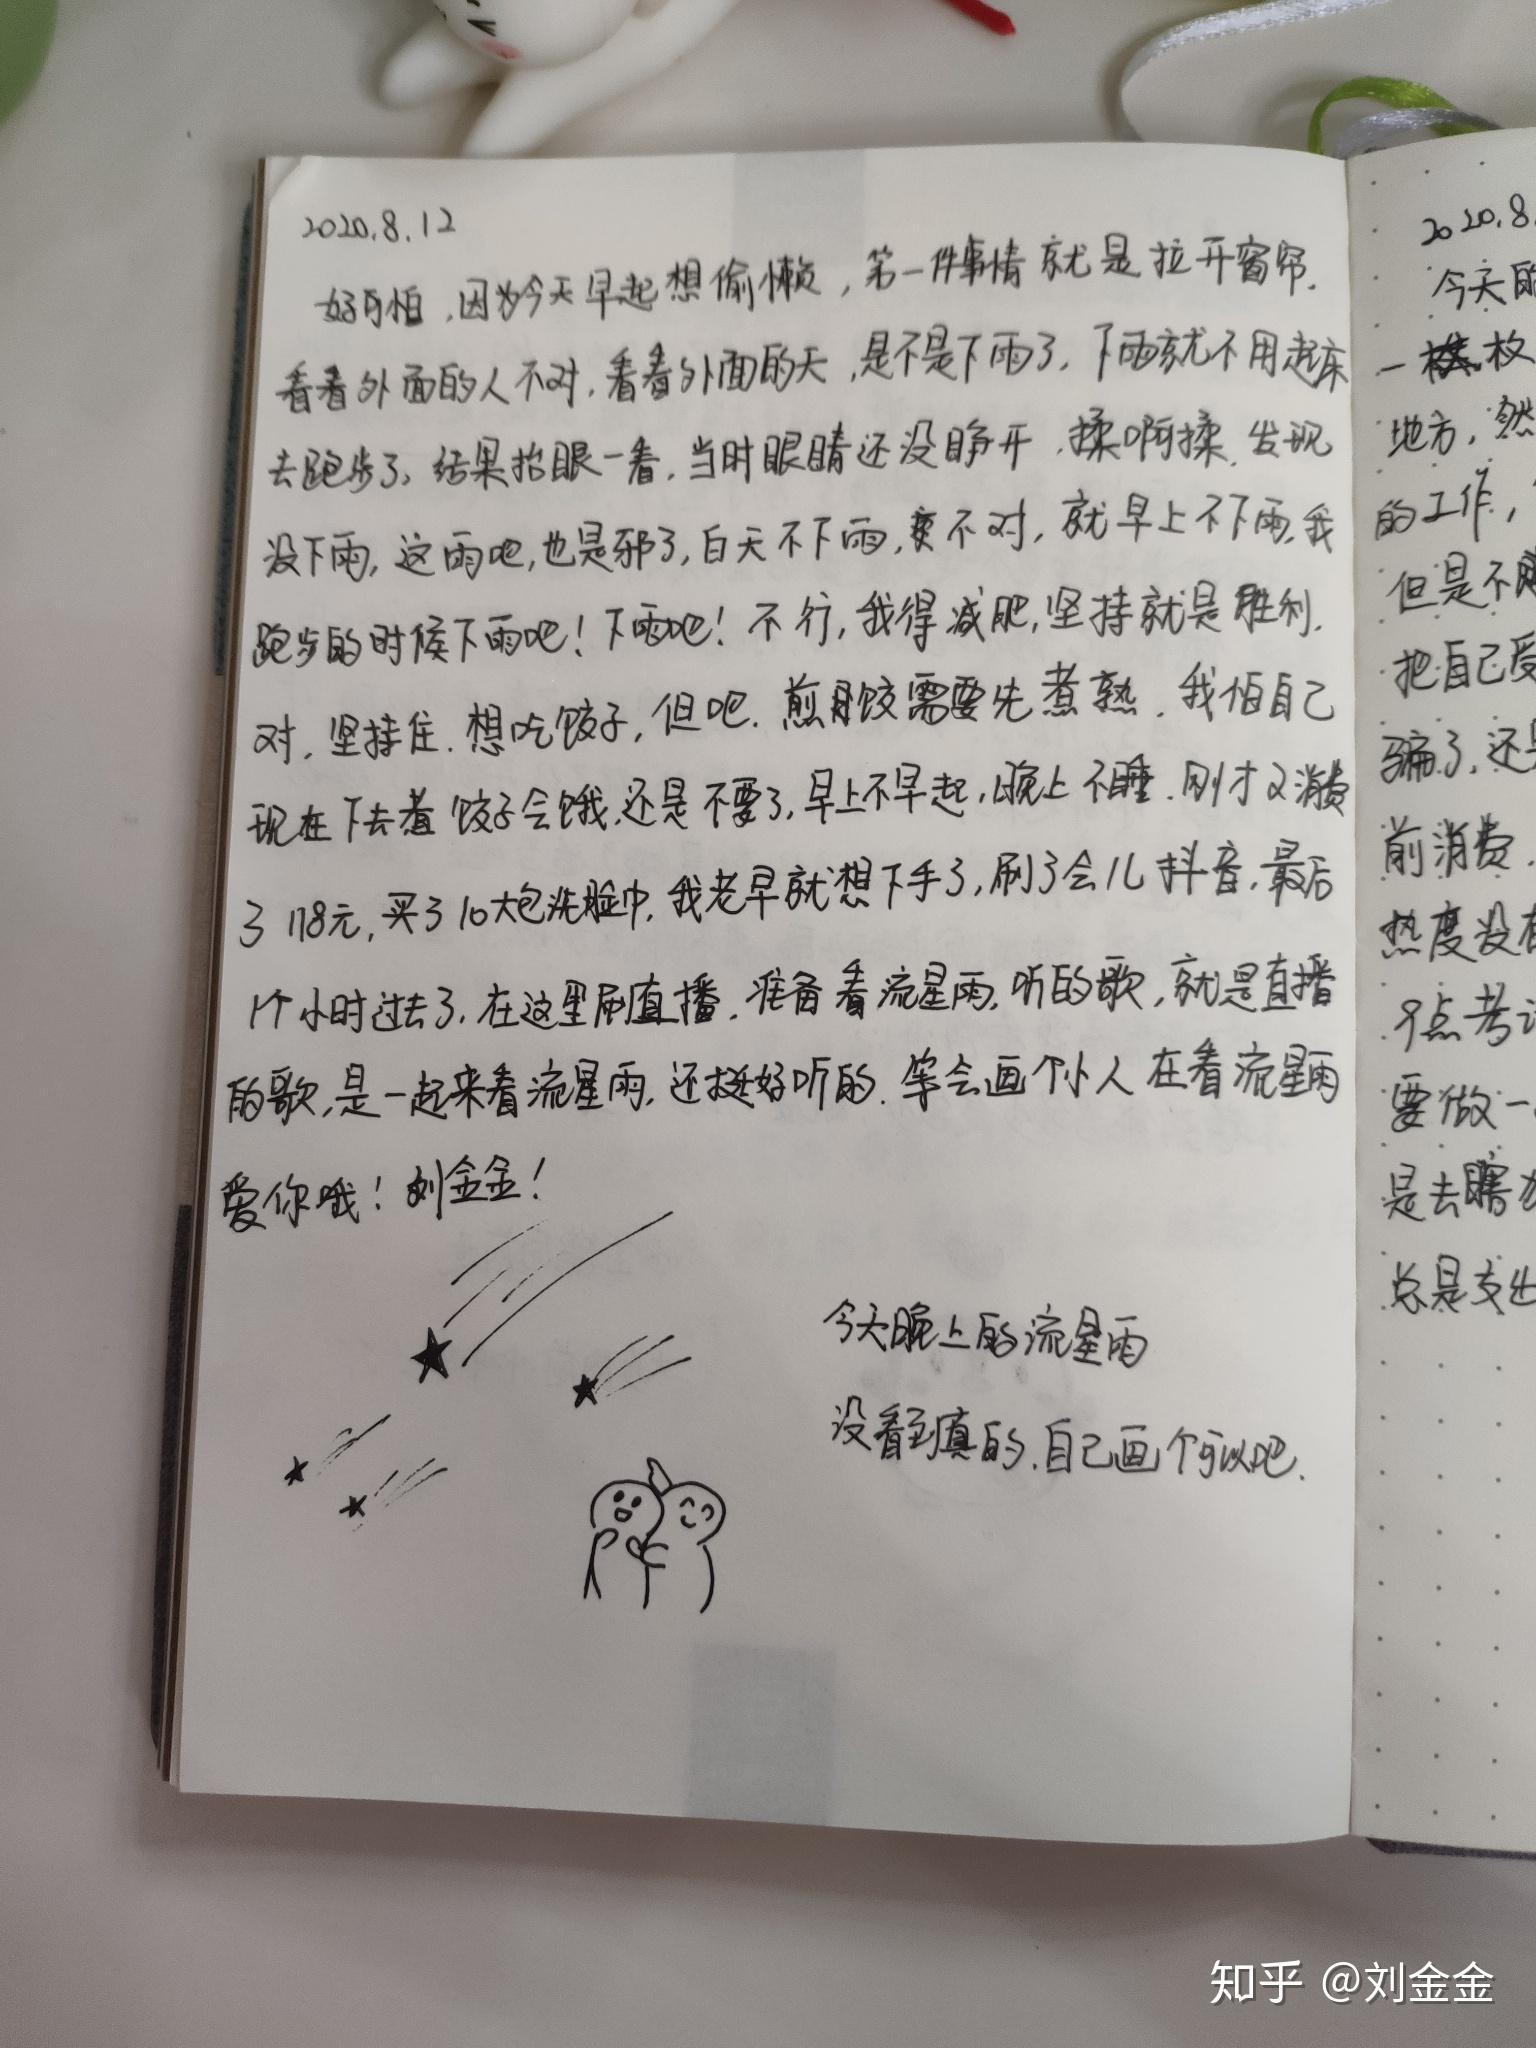 2020.8.12
好可怕,因为今天早起想偷懒,第一件事情就是拉开窗帘.
看看外面的人不对,看看外面的天,是不是下雨了,下雨就不用起床
去跑步了,结果抬眼一看,当时眼睛还没睁开,揉啊揉,发现
没下雨,这雨吧,也是邪了,白天不下雨,更不对,就早上不下雨,我
跑步的时候下雨吧!下雨吧!不行,我得减肥,坚持就是胜利.
对,坚持住.想吃饺子,但吧.煎饺需要先煮熟.我怕自己
现在下去煮饺子会饿,还是不要了,早上不早起,晚上不睡.刚才又消费
了118元,买了10大包洗脸巾,我老早就想下手了,刷了会儿抖音,最后
1个小时过去了,在这里刷直播,准备看流星雨,听的歌,就是直播
的歌,是一起来看流星雨,还挺好听的.等会画个小人在看流星雨
爱你哦!刘金金!
今天晚上的流星雨
没看到真的,自己画个可以吧.
2020.8.
今天的
一 枚
地方,然
的工作,
但是不
把自己受
骗了,还是
前消费,
热度没有
个点考
要做一
是去瞎
总是支出
知乎 @刘金金